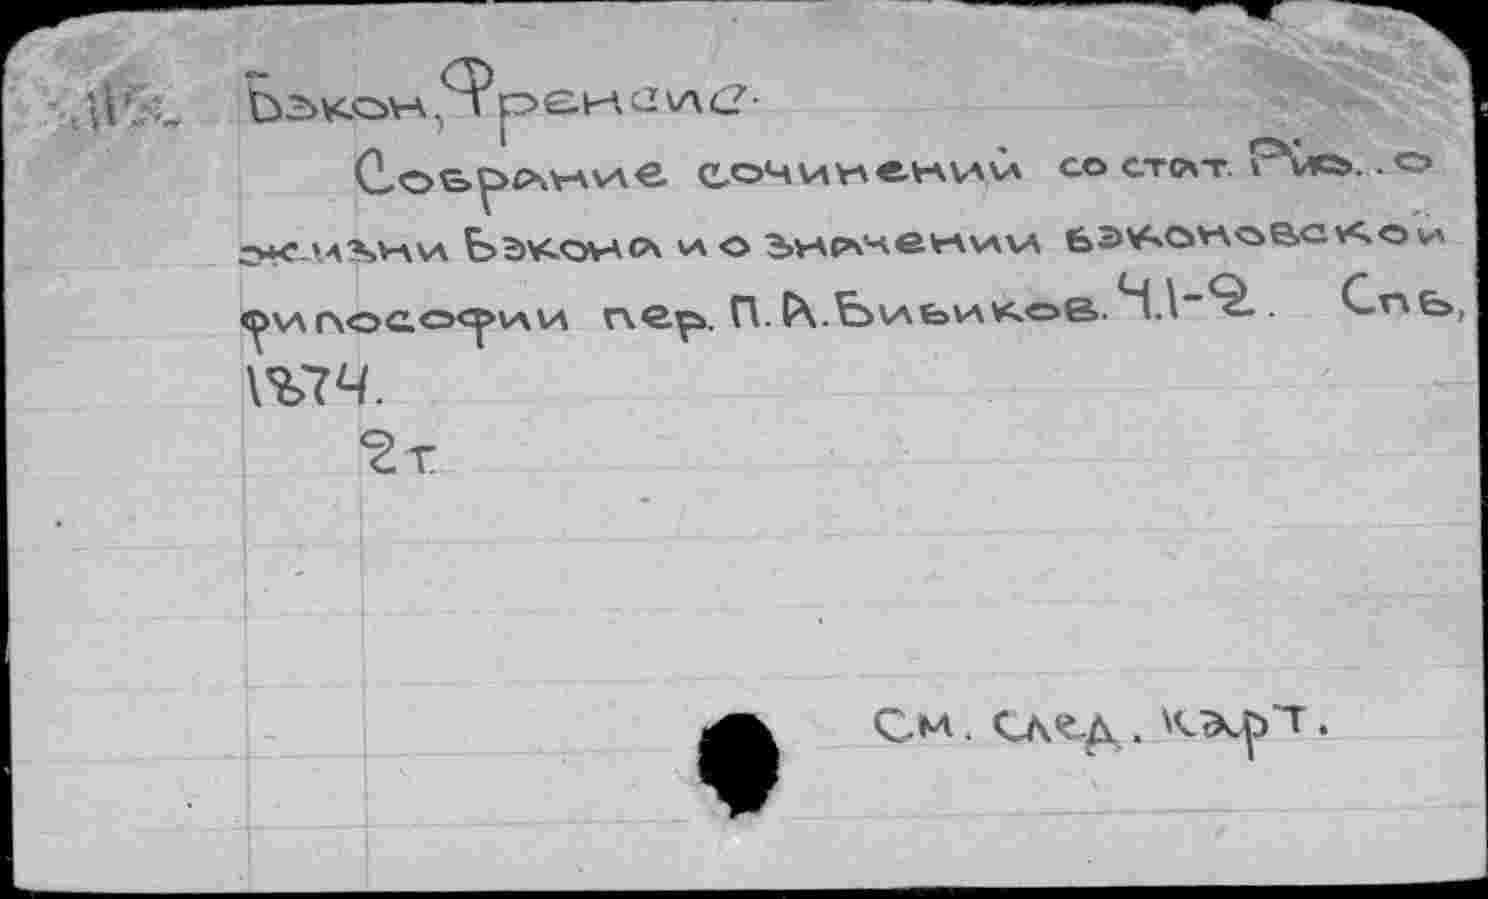 Бэкон, Френсис.
Собрание сочинений со стат. Рию.. о
жизни Бэкона и о значении бэконовской
филосоофии пер. П.А.Бибиков. Ч.1-2. Спб,
1874.
2т.
См. след. карт.